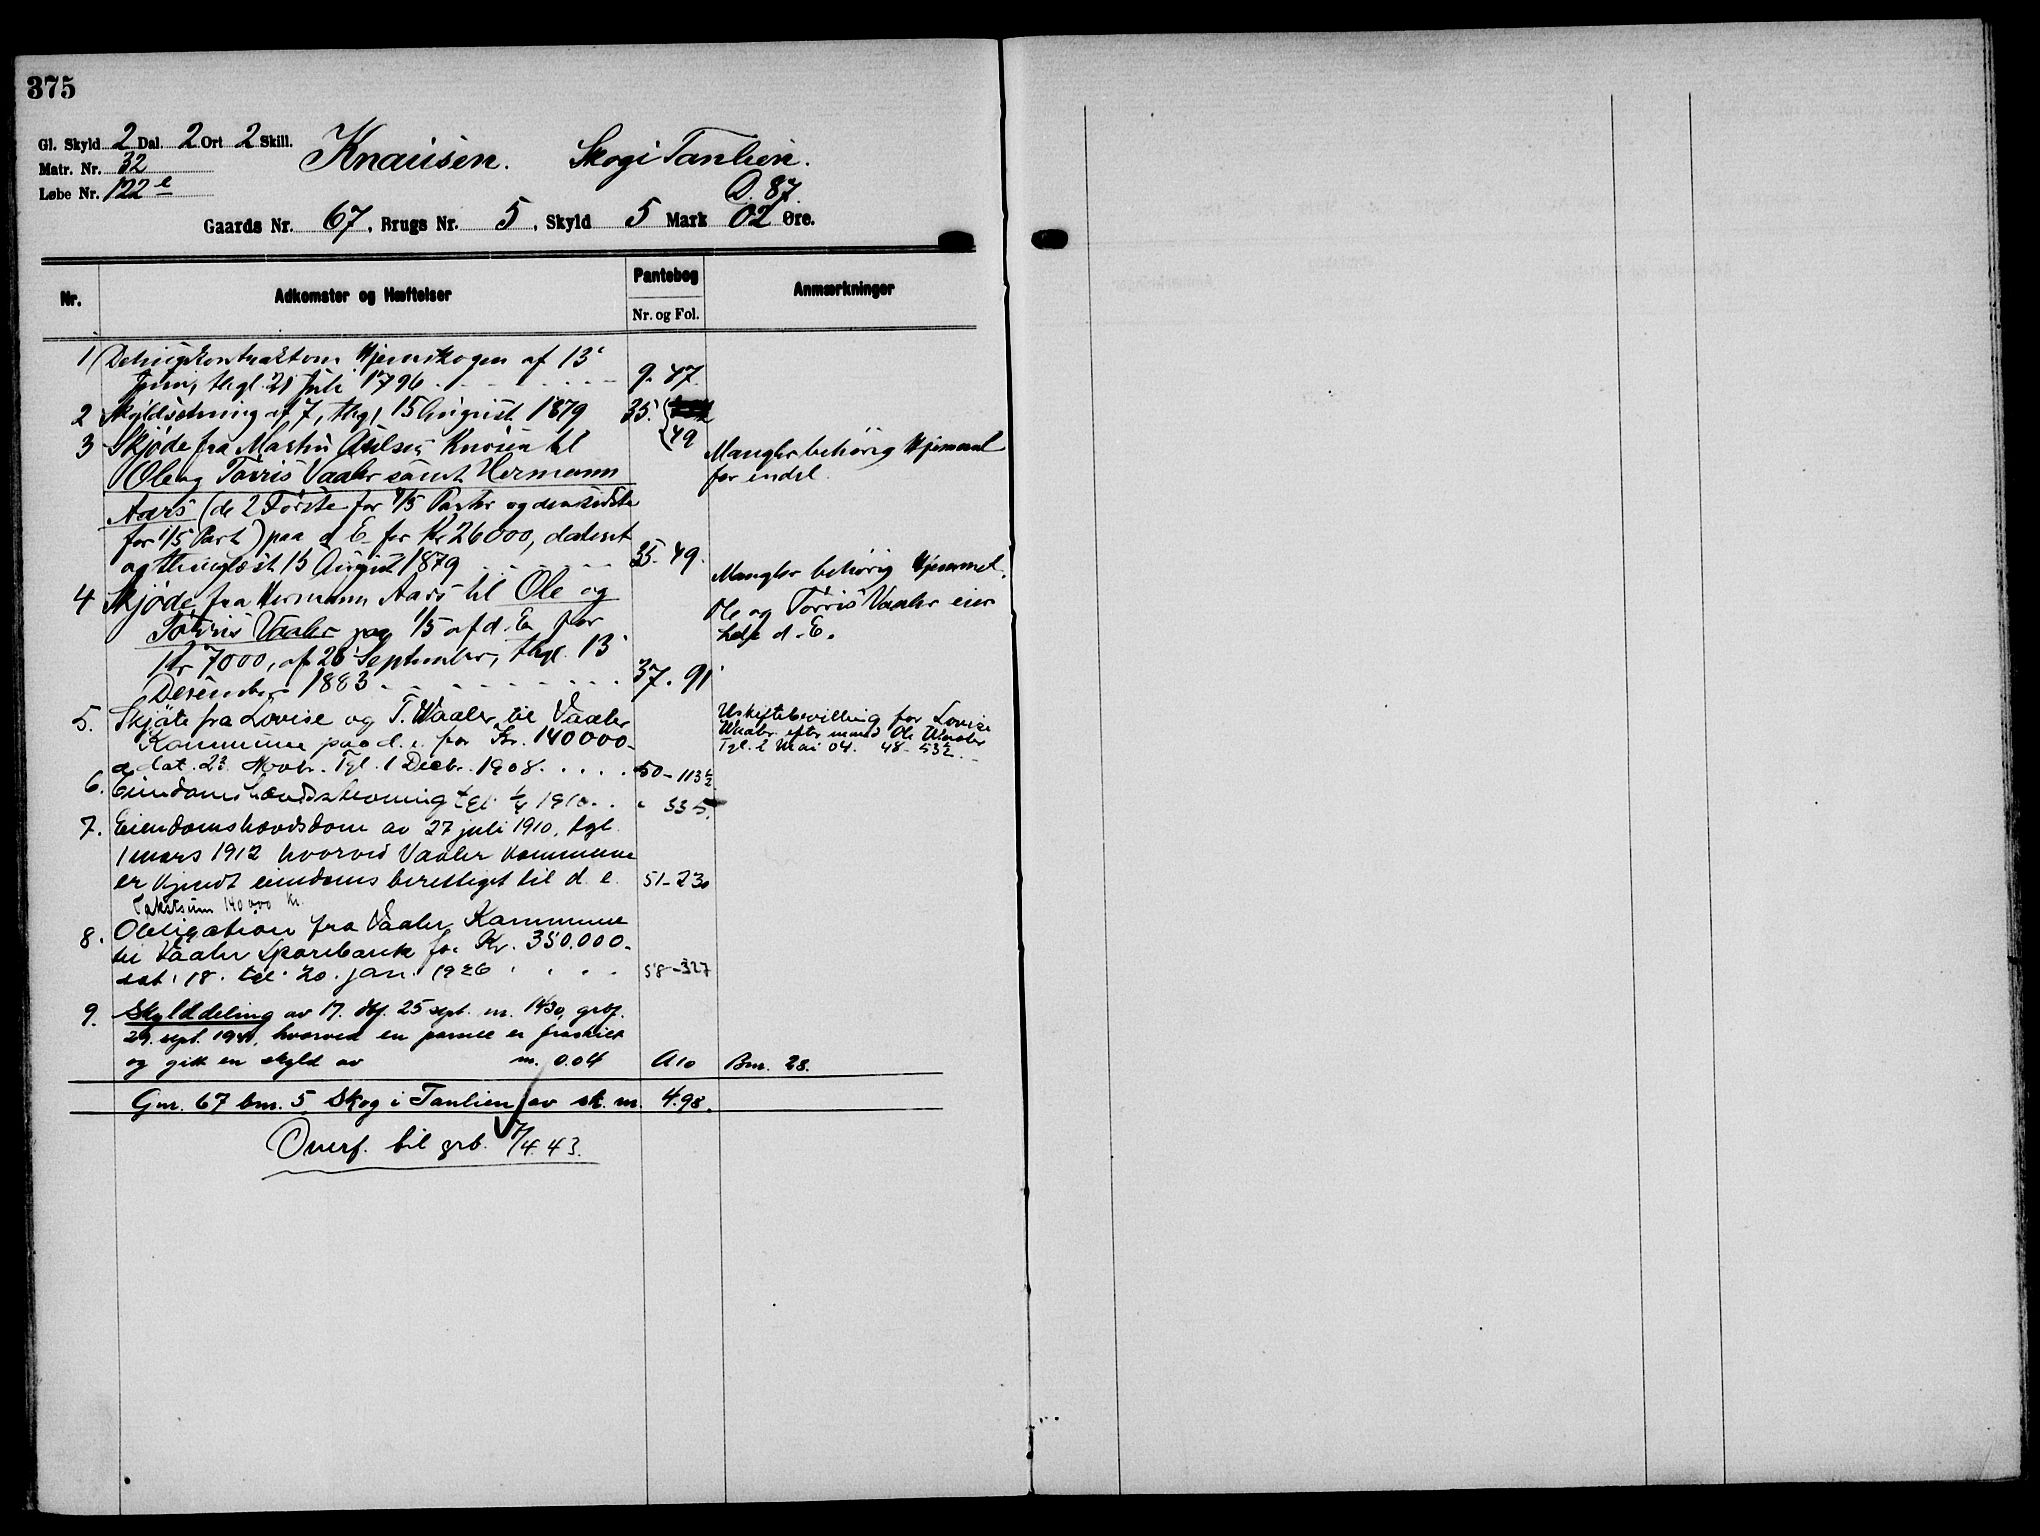 375
Gl. Skyld 2 Dal. 2 Ort 2 Skill.
Matr. Nr. 32
Løbe Nr. 122 e
Knausen. Skog i Tanlien.
D. 87.
Gaards Nr. 67, Brugs Nr. 5, Skyld 5 Mark 02 Øre.
Nr. Adkomster og Hæftelser Pantebog Anmærkninger
Nr. og Fol.
1 Delingskontrakt om Hjemskogen af 13'
Juni, thgl. 21 Juli 1796 9. 47.
2 Skyldsetning af 7, thgl 15 August 1879 35.
3 Skjøde fra Martin Knosen til 49
Ole og Torris Vaaler samt Hermann
Aars (de 2 Første for 4/5 Parter og den sidste
for 1/5 Part) paa d. E. for Kr 26000, dateret
og thinglæst 15 August 1879 35. 49.
Mangler behørig Hjemmel
for endel.
4 Skjøde fra Hermann Aars til Ole og
Torris Vaaler paa 1/5 af d. E. for
Kr 7000, af 26 September, thgl. 13
Desember 1883 37. 91
Mangler behørig Hjemmel.
Ole og Torris Vaaler eier
hele d. E.
5. Skjøte fra Lovise og T. Waaler til Vaaler
Kommune paa d. e. for Kr. 140000.
dat. 23. Novbr. Tgl. 1 Decbr. 1908. 50-113
Uskiftebevilling for Lovise
Waaler efter mand Ole Waaler
Tgl. 2 Mai 04. 48-532.
6. Eiendomshævdsstevning tgl. 1910. " 335.
7. Eiendomshævdsdom av 27 juli 1910, tgl.
1 mars 1912 hvorved Vaaler kommune
er kjendt eiendomsberettiget til d. e. 51-230
Takstsum 140000 Kr.
8. Obligation fra Vaaler Kommune
til Vaaler Sparebank for Kr. 350.000.
dat. 18. tgl. 20. jan. 1926 58-327
9. Skylddeling av 17. dbf. 25 sept. nr. 1430, grbf.
29. sept. 1941, hvorved en parsell er fraskilt
og gitt en skyld av m. 0.04 A10 Bnr. 28.
Gnr. 67 bnr. 5, Skog i Tanlien, av sk. m. 4.98.
Overf. til grb. 7/4.43.